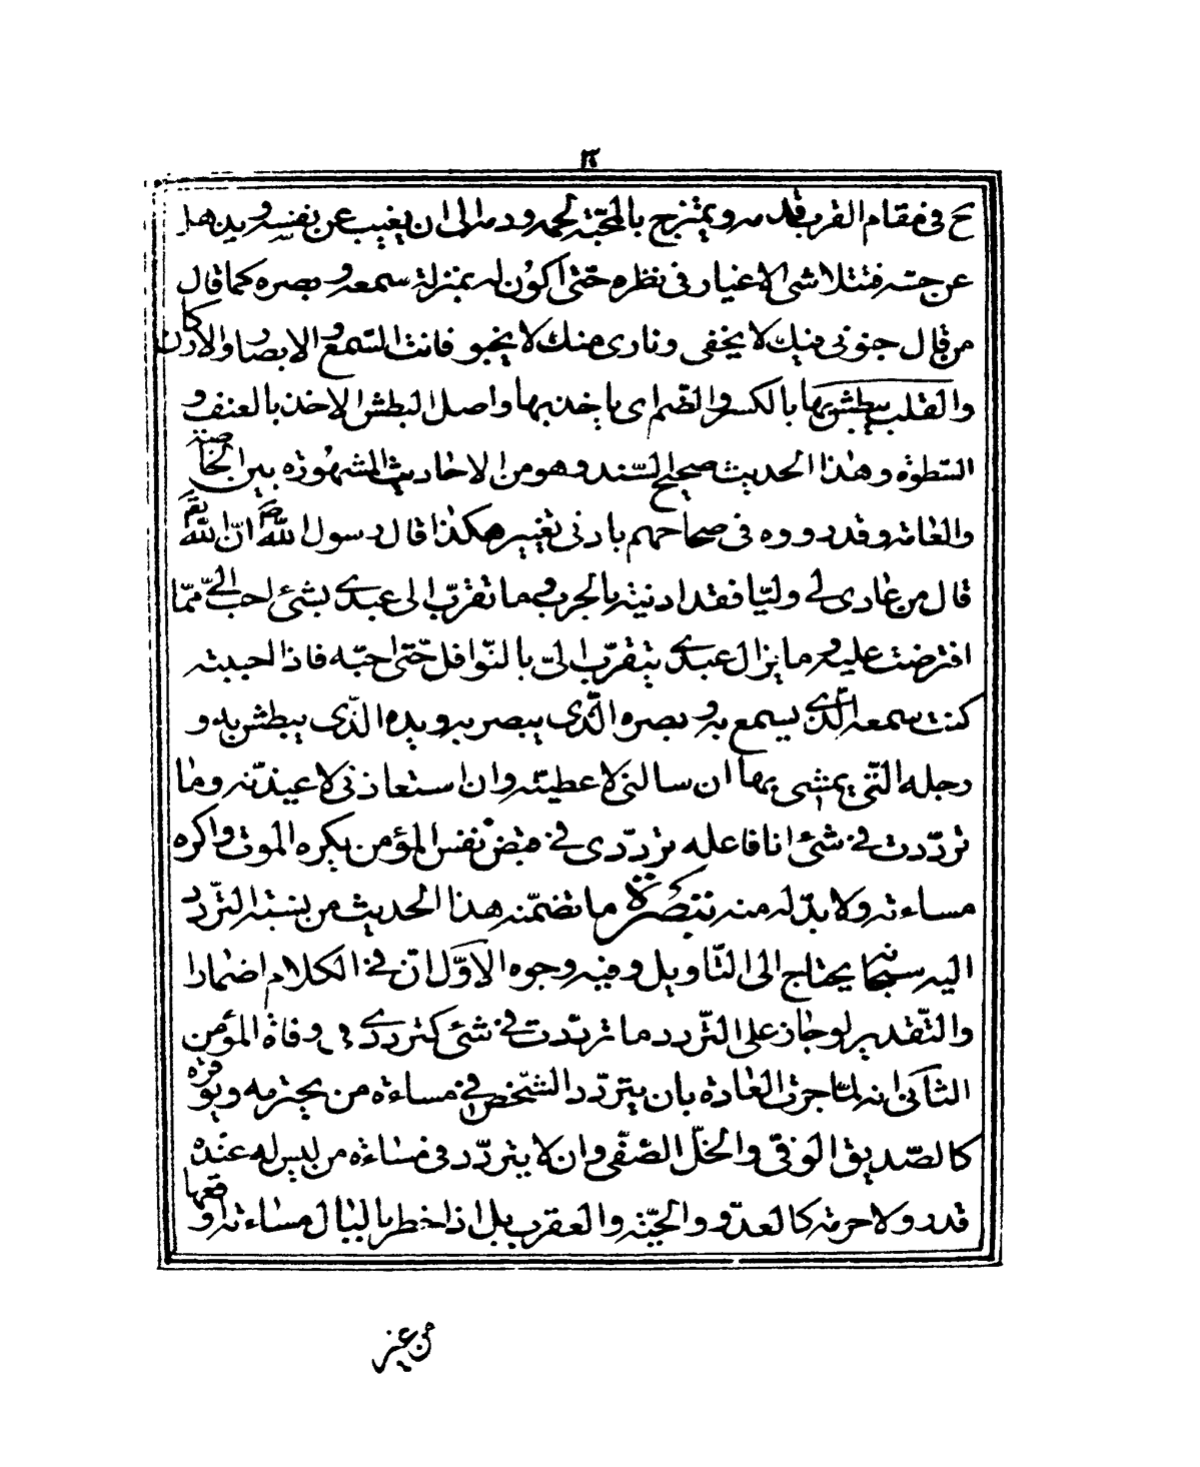 ١٣
ح فى مقام القرب قدمه و يمتزج بالمحبّة لحمه و دمه الى ان يغيب عن نفسه و يذهل
عن حسّه فتتلاشى الاغيار فى نظره حتّى اكون له بمنزلة سمعه و بصره كما قال
من قال جنونى فيك لا يخفى و نارى منك لا يخبو فانت السّمع و الابصار و الاركان
و القلب يبطش بها بالكسر و الضم اى ياخذ بها و اصل البطش الاخذ بالعنف و
السّطوة و هذا الحديث صحيح السّند و هو من الاحاديث المشهورة بين الخاصة
و العامة و قد رووه فى صحاحهم بادنى تغيير هكذا قال رسول اللّٰه ص انّ اللّٰه تع
قال من عادى لى وليّا فقد اذنته بالحرب و ما تقرّب الى عبدى بشئ احب الىّ ممّا
افترضت عليه و ما يزال عبدى يتقرّب الىّ بالنّوافل حتّى احبّه فاذا احببته
كنت سمعه الّذى يسمع به و بصره الّذى يبصر به و يده الّذى يبطش بها و
رجله التّى يمشى بها ان سالنى لاعطيته و ان استعاذنى لاعيذنّه و ما
تردّدت فى شئ انا فاعله تردّدى فى قبض نفس المؤمن يكره الموت و اكره
مساءته و لا بدّ له منه تبصرة ما تضمّنه هذا الحديث من نسبة التّردد
اليه سبحانه يحتاج الى التّاويل و فيه وجوه الاوّل انّ فى الكلام اضمارا
و التّقدير لو جاز علىّ التّردد ما تردّدت فى شئ كتردّدى فى وفاة المؤمن
الثانى انه لمّا جرت العادة بان يتردّد الشّخص فى مساءة من يحترمه و يوقره
كالصّديق الوفىّ و الخلّ الصّفّى و ان لا يتردّد فى مساءة من ليس له عنده
قدر و لا حرمة كالعدو و الحيّة و العقرب بل اذا خطر بالبال مساءته اوقعها
من غير